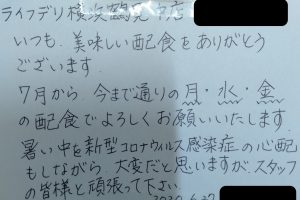 ライフデリ横浜鶴見中店
いつも、美味しい配食をありがとう
ございます。
7月から、今まで通りの月・水・金
の配食でよろしくお願いいたします。
暑い中を新型コロナウィルス感染症の心配
もしながら、大変だと思いますが、スタッフ
の皆様と頑張って下さい。
2020.6.27